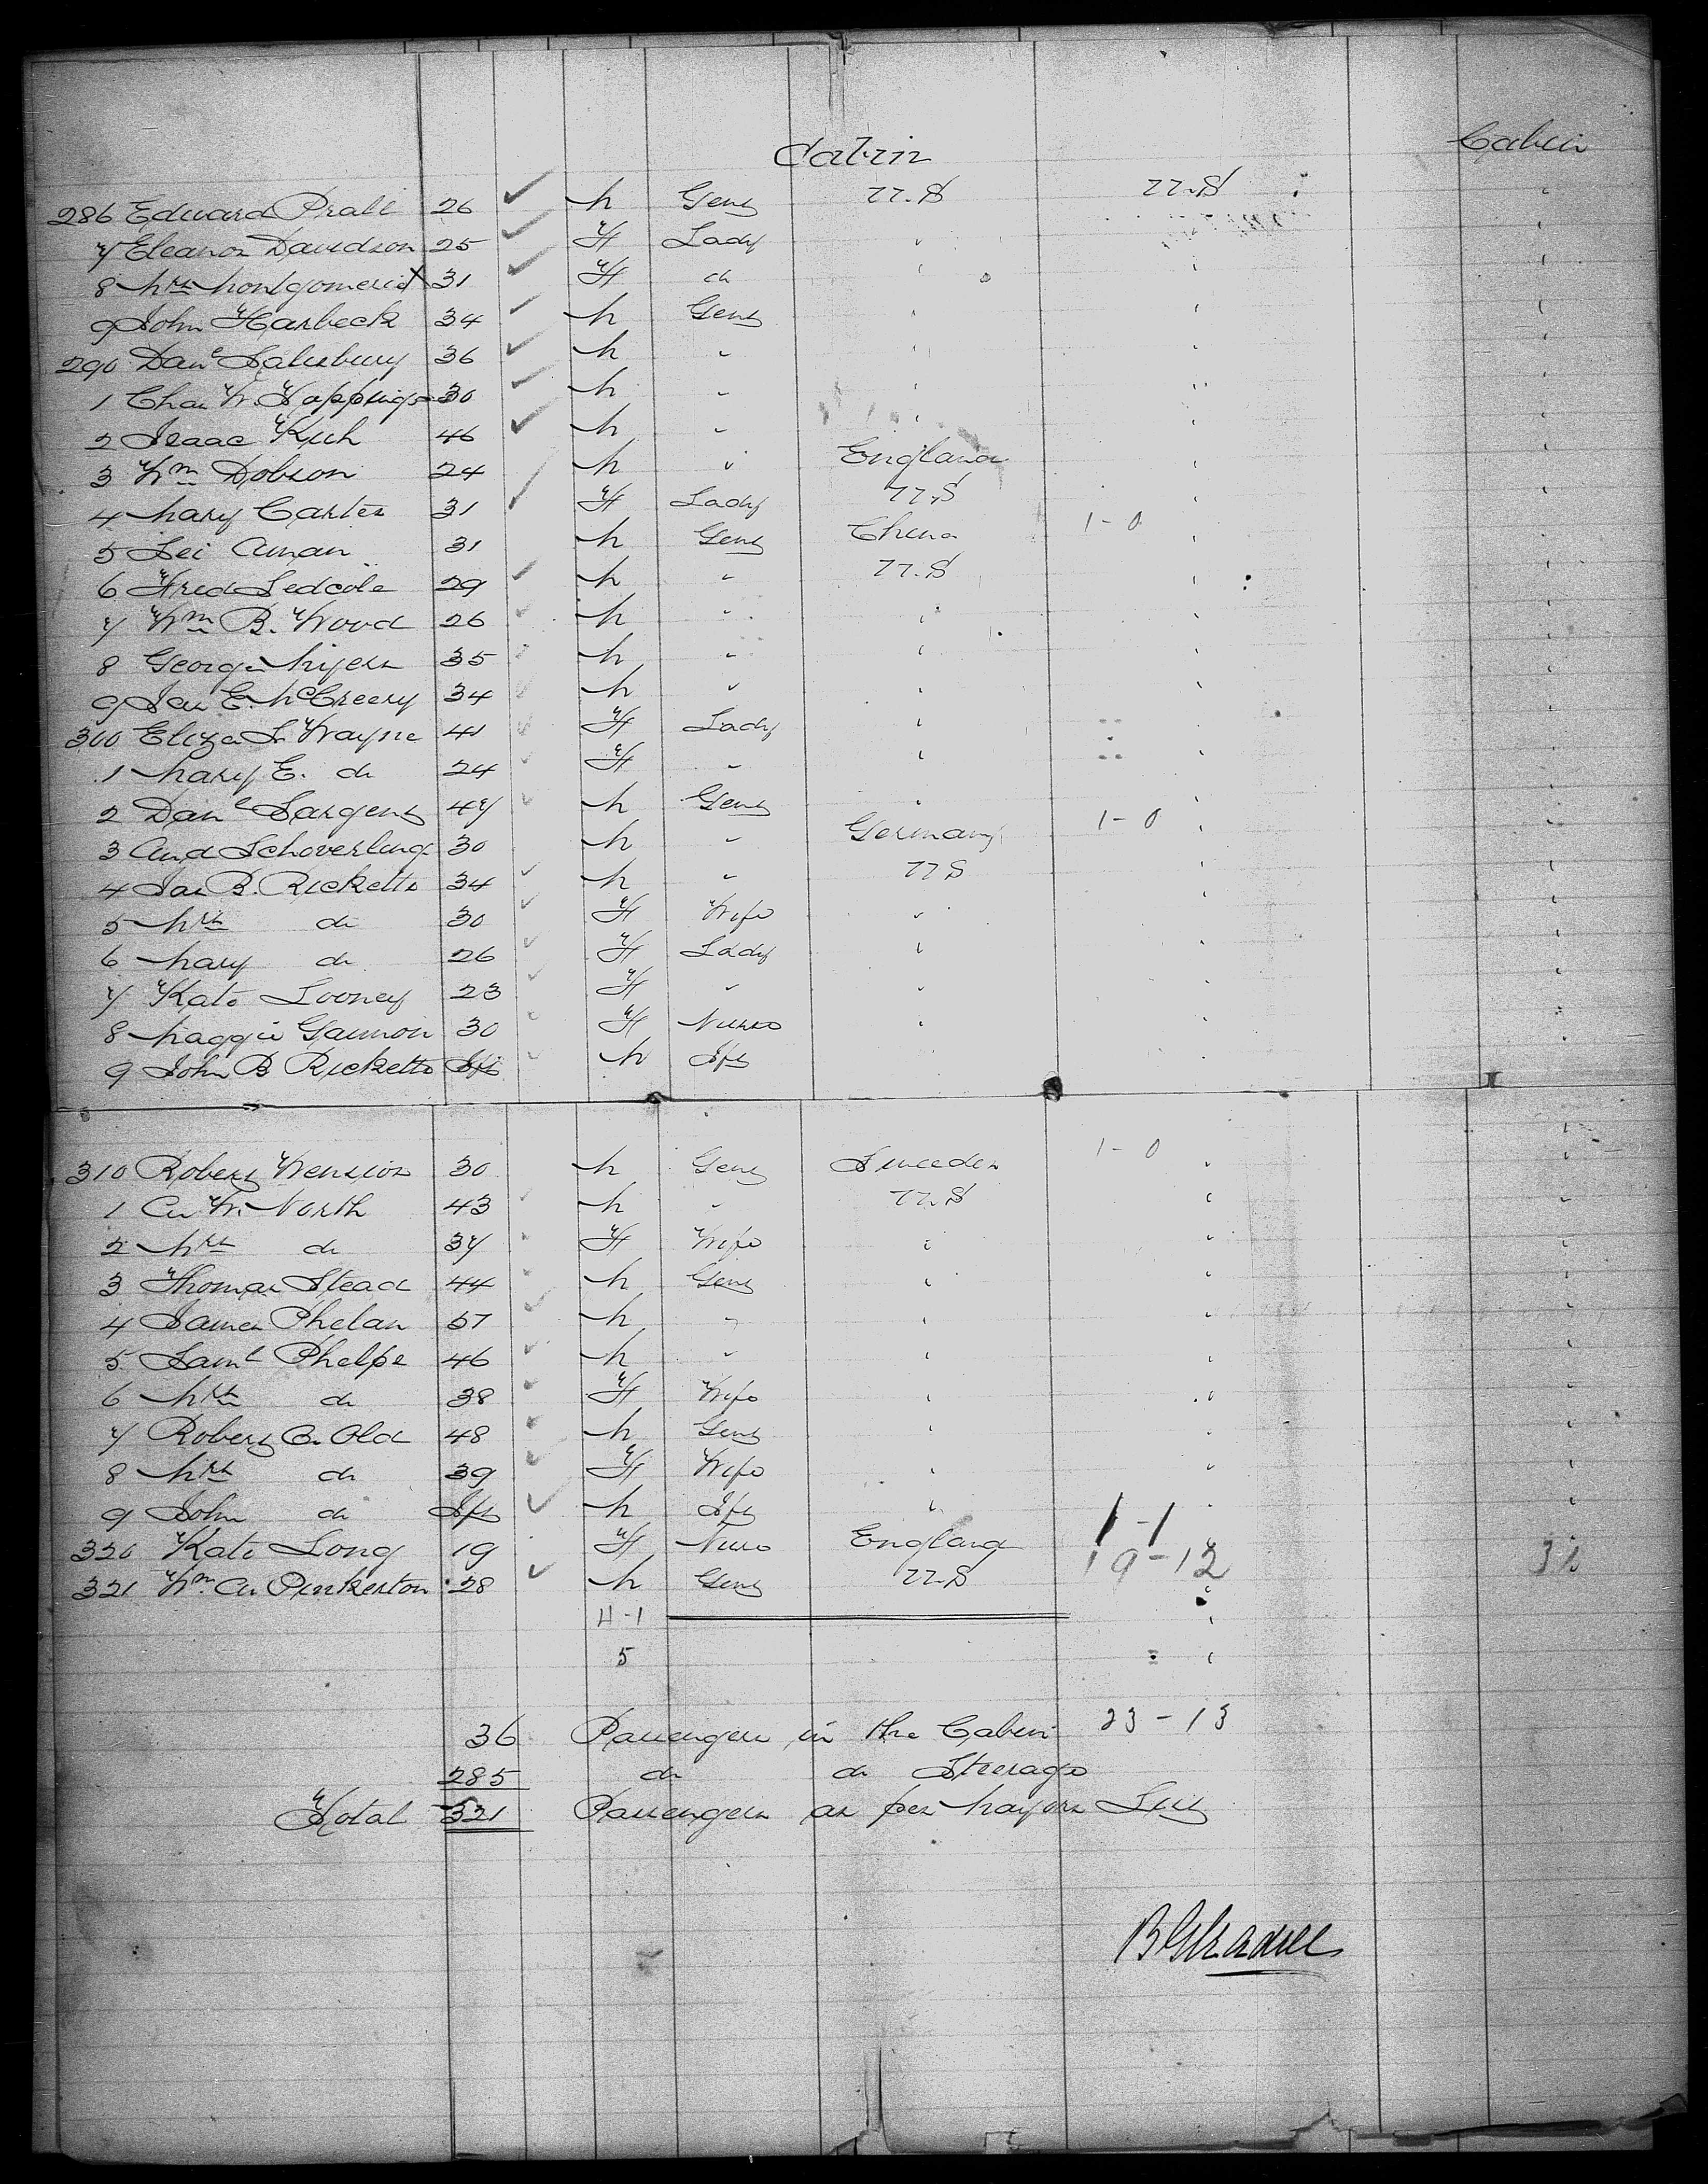 Cabin Cabin
286 Edward Prall 26 M Gent U.S U.S
7 Eleanor Davidson 25 F Lady "
8 Mrs Montgomerie X 31 F do "
9 John Harbeck 34 M Gent "
290 Danl Salisbury 36 M " "
1 Chas W. 30 M " "
2 Isaac 46 M " "
3 Wm Dobson 24 M " England
4 Mary Carter 31 F Lady U.S
5 Lei Aman 31 M Gent China 1-0
6 Fred Sedcole 29 M " U.S
7 Wm B. Wood 26 M " "
8 George Myers 35 M " "
9 Jas E. McCreery 34 M " "
300 Eliza S. Wayne 41 F Lady "
1 Mary E. do 24 F " "
2 Danl Sargent 47 M Gent "
3 Aug Schoverling 30 M " Germany 1-0
4 Jas B. Ricketts 34 M " U.S
5 Mrs do 30 F Wife "
6 Mary do 26 F Lady "
7 Kate Looney 23 F " "
8 Maggie Gannon 30 F Nurse "
9 John B Ricketts Inft M Inft
310 Robert 30 M Gent Sweeden 1-0
1 A. W. North 43 M " U.S
2 Mrs do 37 F Wife "
3 Thomas Stead 44 M Gent "
4 James Phelan 57 M " "
5 Saml Phelps 46 M " "
6 Mrs do 38 F Wife "
7 Robert O. Old 48 M Gent "
8 Mrs do 39 F Wife "
9 John do Inft M Inft "
320 Kate Long 19 F Nurse England 1-1
321 Wm A. Pinkerton 28 M Gent U.S 19-12
4-1
5
36 Passengers in the Cabin 23-13
285 do do Steerage
Total 321 Passengers as per Mayors List